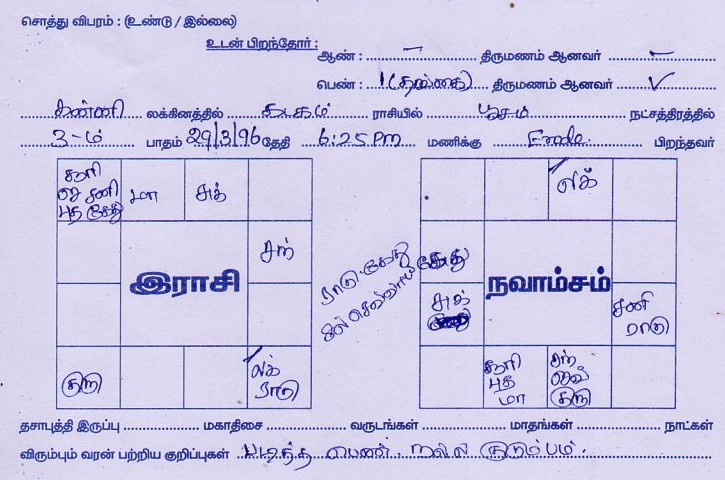 சொத்து விபரம் : (உண்டு / இல்லை)
உடன் பிறந்தோர் :
ஆண் : – திருமணம் ஆனவர் –
பெண் : 1 (தங்கை) திருமணம் ஆனவர் ✓
கன்னி லக்கினத்தில் கடகம் ராசியில் பூசம் நட்சத்திரத்தில்
3-ம் பாதம் 29/3/96 தேதி 6:25 PM மணிக்கு Erode பிறந்தவர்
சூரி
செ சனி
புத கேது
மா
சுக்
சந்
இராசி
குரு
லக்
ராகு
ராகு கேது
செவ்வாய்
லக்
கேது
சுக்
நவாம்சம்
சனி
ராகு
சூரி
புத
மா
சந்
செவ்
குரு
தசாபுத்தி இருப்பு மகாதிசை வருடங்கள் மாதங்கள் நாட்கள்
விரும்பும் வரன் பற்றிய குறிப்புகள் படித்த பெண், நல்ல குடும்பம்.